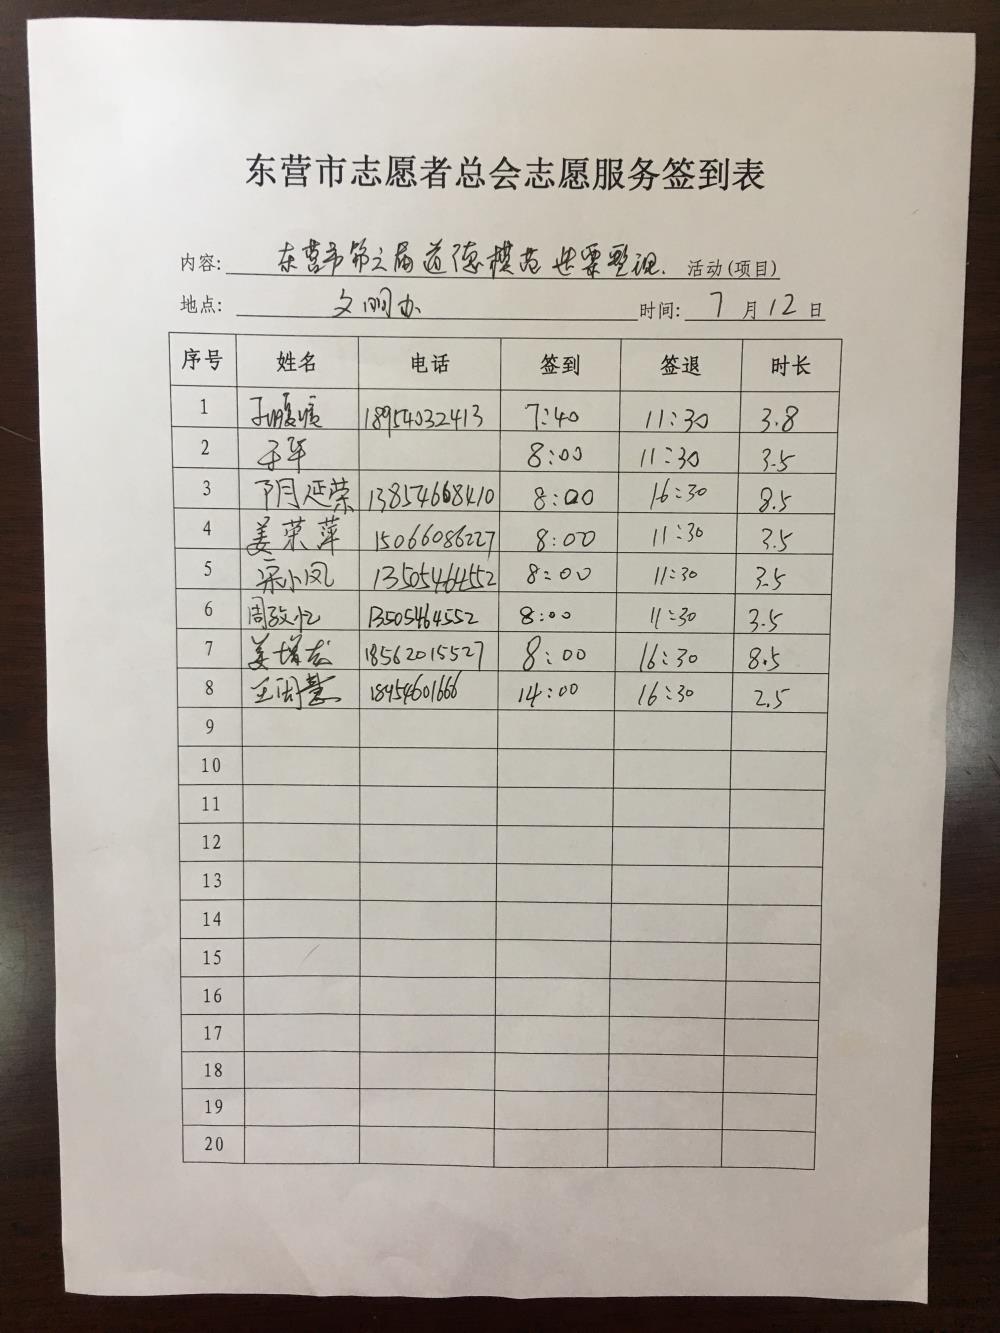 东营市志愿者总会志愿服务签到表
内容: 东营市第六届道德模范选票整理. 活动(项目)
地点: 文明办 时间: 7 月 12 日
序号 姓名 电话 签到 签退 时长
1 18954032413 7:40 11:30 3.8
2 于华 8:00 11:30 3.5
3 阴延荣 13854668410 8:00 16:30 8.5
4 姜荣萍 15066086227 8:00 11:30 3.5
5 宋小凤 13505464552 8:00 11:30 3.5
6 周孜忆 13505464552 8:00 11:30 3.5
7 姜增友 18562015527 8:00 16:30 8.5
8 18954601666 14:00 16:30 2.5
9
10
11
12
13
14
15
16
17
18
19
20